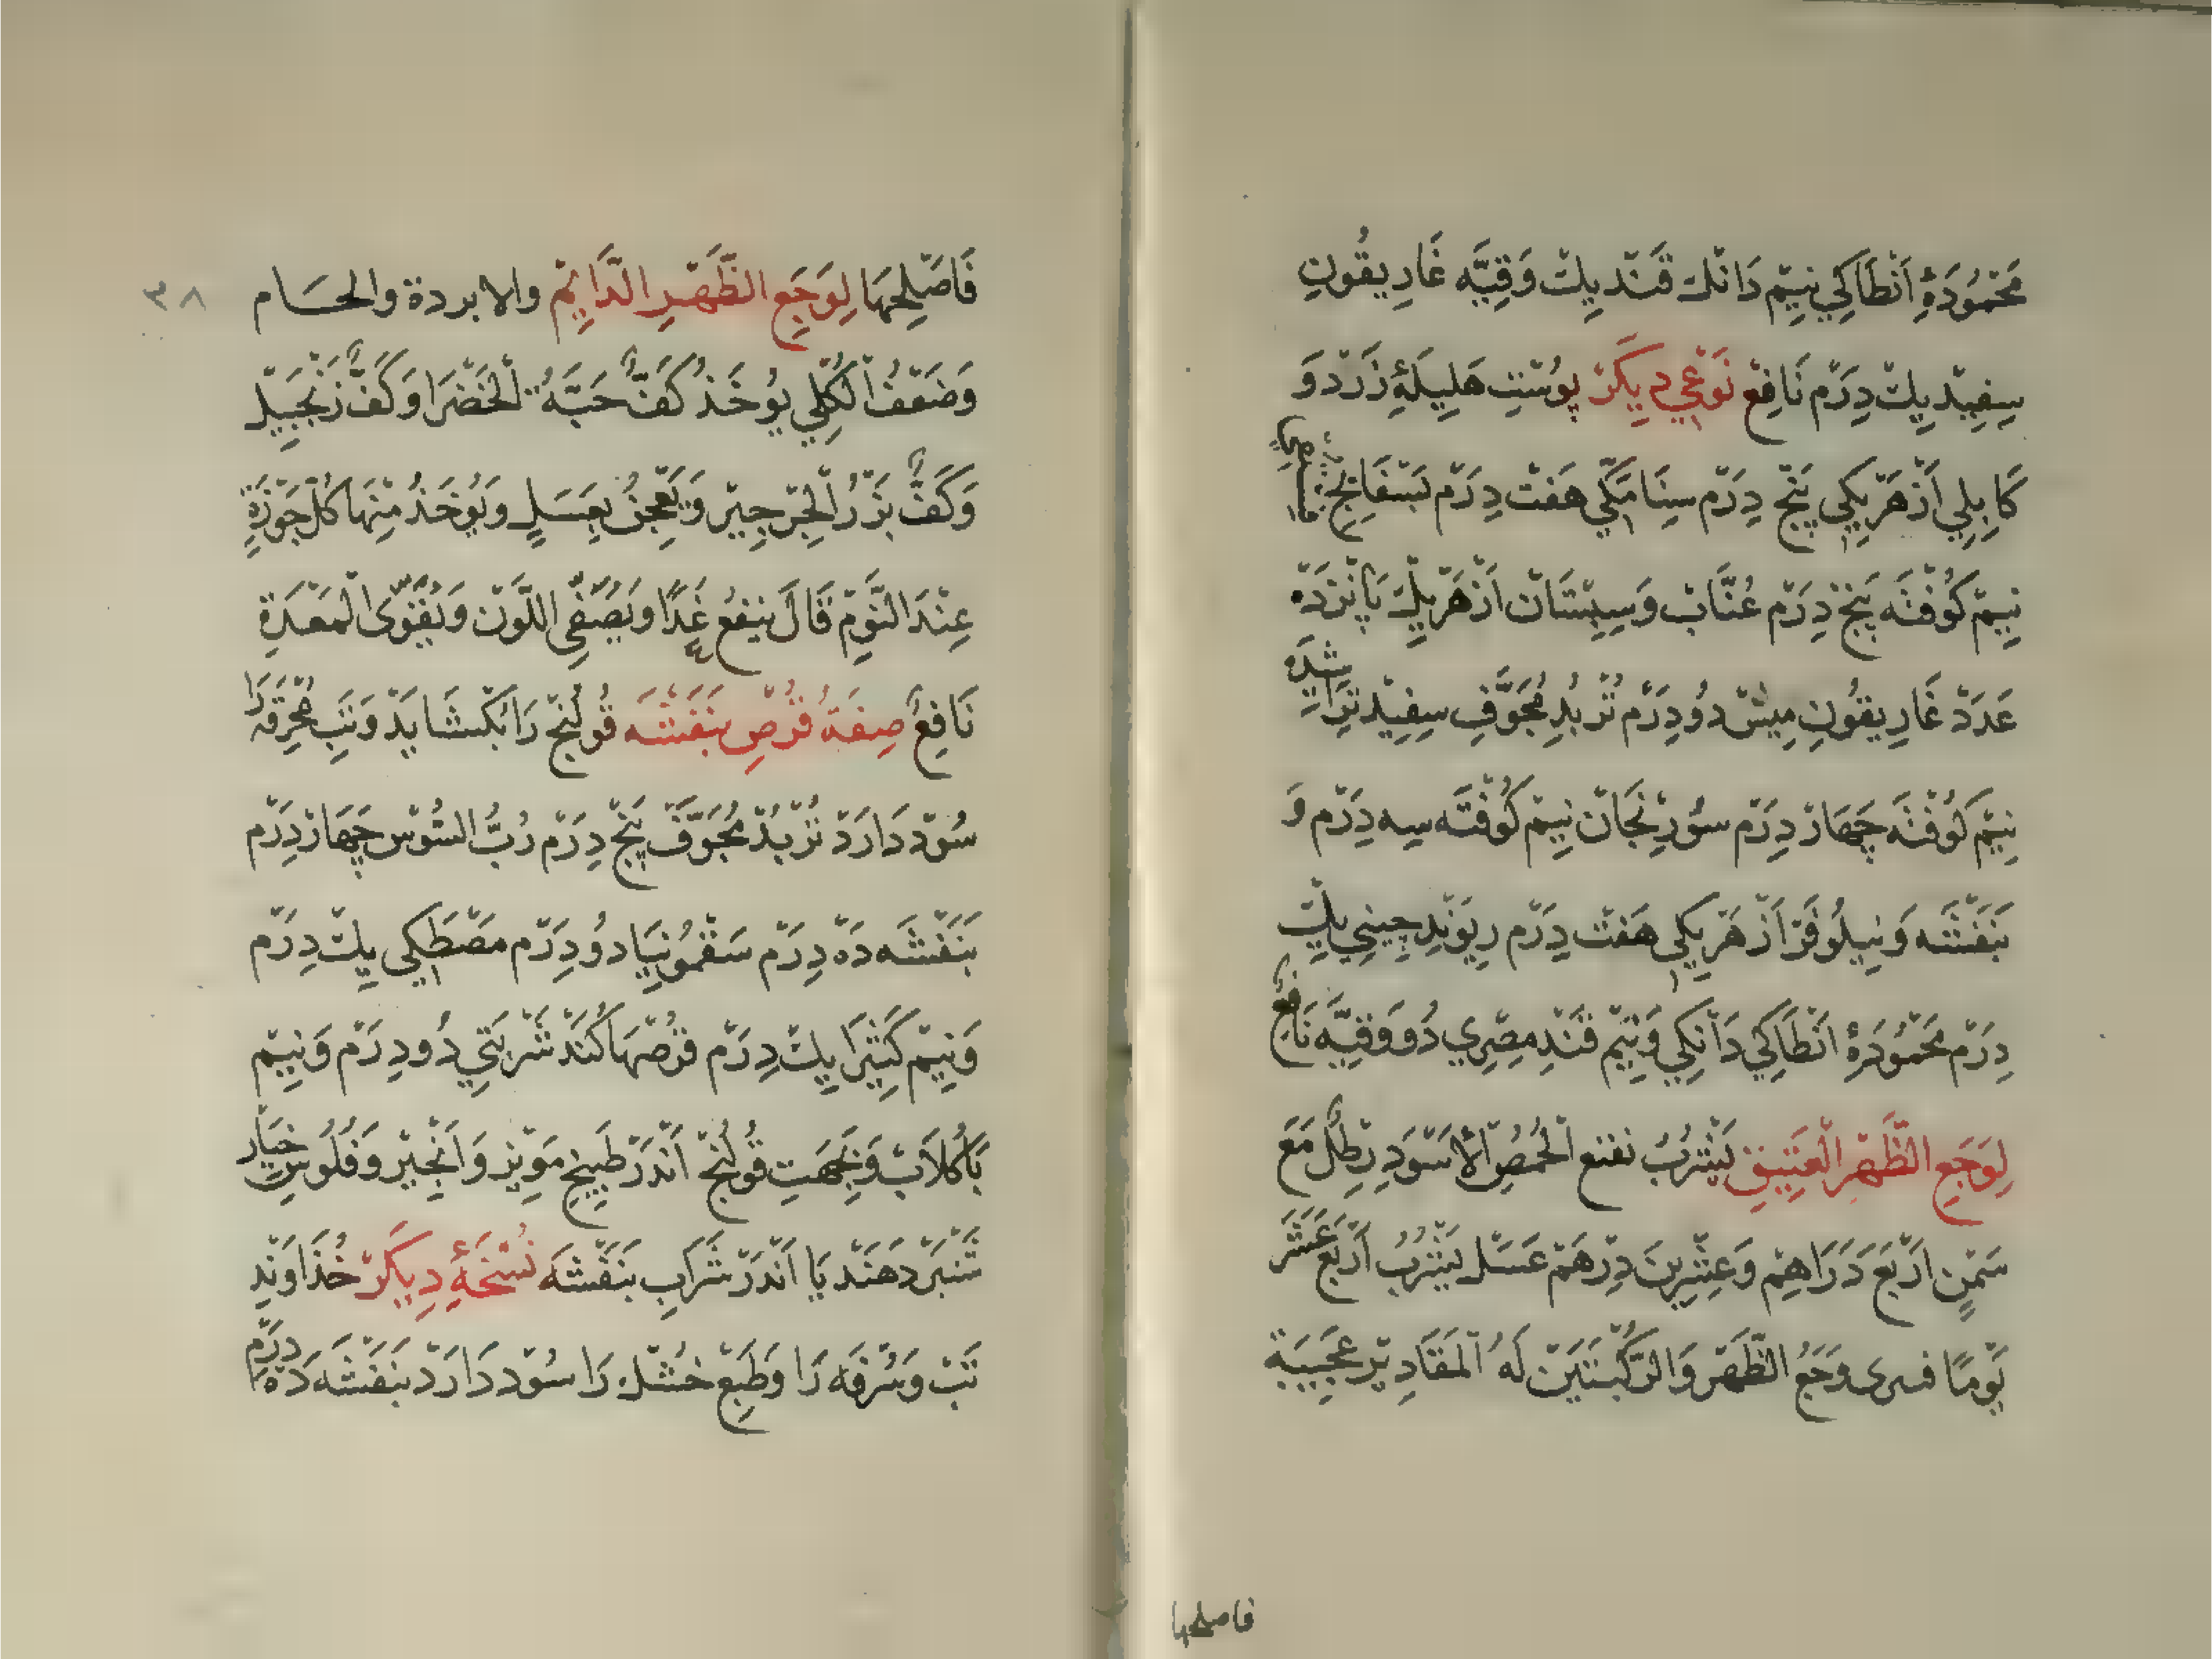 مَحْمُودَهٔ اَنْطَاكِي نِيمْ دَانْك قَنْد يكْ وَقِيَّه غَارِيقُونِ
سِفِيدْ يِكْ دِرَمْ نَافِعْ نَوْعِي دِيكَرْ پوُسْتِ هَلِيلَهٔ زَرْد وَ
كَابِلِي اَزْ هَرْيِكِي پَنْج دِرَمْ سِنَا مَكِّي هَفت دِرَمْ بَسْفَايَجْ
نِيمْ كُوفْتَه پَنْج دِرَمْ عُنَّابْ وَسِپِسْتَانْ اَزْ هَرْيِكْ پَانْزدَهْ
عَدَدْ غَارِيقُونِ مِيشْ دُو دِرَمْ تُرْبُدِ مُجَوَّفِ سِفِيد تَرَاشِيدَه
نِيمْ كُوفْتَه چَهَارْ دِرَمْ سُورِنْجَانْ نِيمْ كُوفْتَه سِه دِرَمْ وَ
بَنَفْشَه وَنِيلُوفَرْ اَزْ هَرْيِكِي هَفْت دِرَمْ رِيوَنْدِ چِينِي يِكْ
دِرَمْ مَحْمُودَهٔ اَنْطَاكِي دَانْكِي وَنِيمْ قَنْدِ مِصْرِي دُو وَقِيَّه نَافِعْ
لِوَجَعِ الظَّهْرِ الْعَتِيقِ يَشْرَبُ نقنع الْحُمُصِ الْأَسْوَدِ رِطْلٌ مَعَ
سَمْنٍ اَرْبَعَ دَرَاهِمْ وَعِشْرِينَ دِرْهَمْ عَسَلْ يَشْرَبُ اَرْبَعَ عَشَرَ
يَوْمًا فسرى وَجَعُ الظَّهْرْ وَالرُّكْبَتَيْنْ لَهُ الْمَقَادِيرْ عَجِيبَةٌ
فاصلحها
٣٨
فَاصْلِحْهَا لِوَجَعِ الظَّهْرِ الدَّايِمْ والابردة والحسَام
وَضَعْفُ الْكُلِي يُوخَذُ كَفٌّ حَبَّهُ الْخَضْرَا وَكَفُّ زَنْجَبِيلْ
وَكَفٌّ بَزْرُ الْجِرْجِيرْ وَيُعْجَنُ بِعَسَلٍ وَيُوخَذُ مِنْهَا كُلْ جَوْزَةٍ
عِنْدَ النَّوْمِ قَالَ ينفعُ غَدًا وَيُصَفِّى اللَّوْن وَيُقَوِّى الْمَعْدَةِ
نَافِعٌ صِفَةُ قُرْصِ بَنَفْشَه قُولِنْج رَا بُكْشَايَدْ وَتَبِ مُحْرِقَه رَا
سُودْ دَارَدْ تُرْبُدْ مُجَوَّفْ پَنْج دِرَمْ رُبُّ السُّوسْ چِهَارْ دِرَمْ
بَنَفْشَه دَهْ دِرَمْ سَقْمُونِيَا دُو دِرَمْ مَصْطَكِي يِكْ دِرَمْ
وَنِيمْ كَثِيرَا يِكْ دِرَمْ قُرْصْهَا كُنَنْد شَرْبَتِي دُو دِرَمْ وَنِيمْ
بَا كُلَابْ وَبِجِهَتِ قُولِنْج اَنْدَرْ طَبِيخِ مَوِيز وَاَنْجِيرْ وَفُلُوسِ خِيَارْ
شَنْبَرْ دَهَنْد يَا اَنْدَرْ شَرَابِ بَنَفْشَه نُسْخَهٔ دِيكَرْ خُذَاوَنْدِ
تَبْ وَسُرْفَه رَا وَطَبْعْ خُشْك رَا سُودْ دَارَدْ بَنَفْشَه دَهْ دِرَمْ